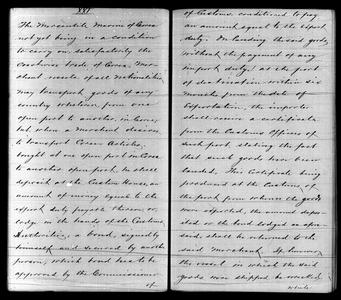 The Mercantile Marine of Corea
not yet being in a condition
to carry on satisfactorily the
Coastwise trade of Corea, Mer-
chant vessels of all Nationalities
may transport goods of any
country whatever from one
open port to another, in Corea,
but when a Merchant desires
to transport Corean Articles,
bought at one open port in Corea
to another open port, he shall
deposit at the Custom House, an
amount of money equal to the
export duty payable thereon, or
lodge in the hands of the Customs
Authorities, a bond, signed by
himself and secured by another
person, which bond has to be
approved by the Commissioner
of
of Customs, conditioned to pay
an amount equal to the export
duty. On landing the said goods,
without the payment of any
import duty, at the port
of destination within six
months from the date of
Exportation, the importer
shall receive a certificate
from the Customs Officers of
such port, stating the fact
that such goods have been
landed. This Certificate being
produced at the Customs, of
the port from whence the goods
were exported, the amount depos-
ited or the bond lodged as afore-
said, shall be returned to the
said Merchant.
the vessel on which the said
goods were shipped be wrecked